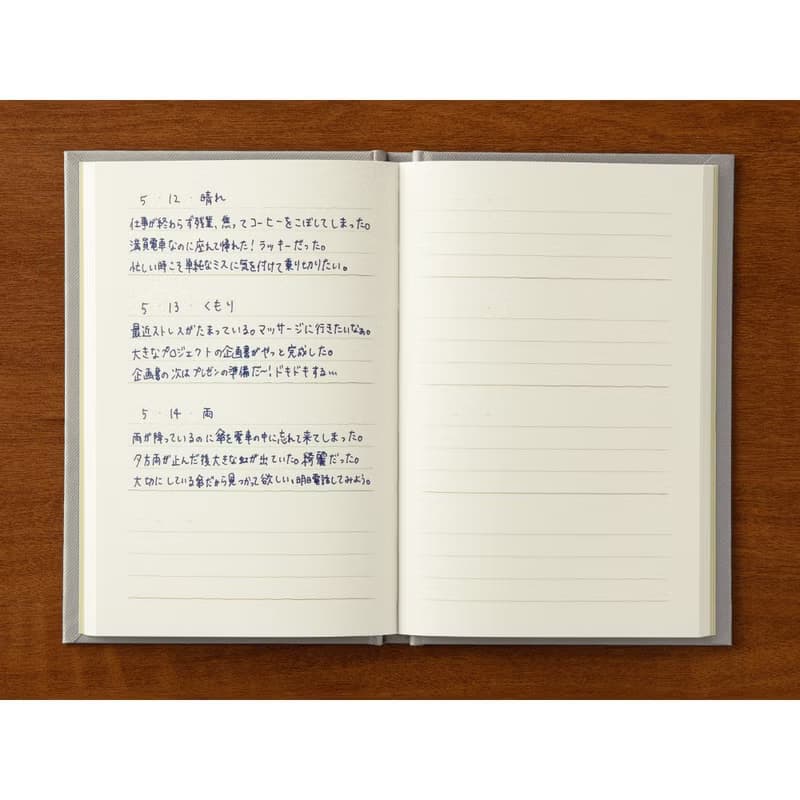 5・12・晴れ
仕事が終わらず残業、焦ってコーヒーをこぼしてしまった。
満員電車なのに座れて帰れた！ラッキーだった。
忙しい時こそ単純なミスに気を付けて乗り切りたい。
5・13・くもり
最近ストレスがたまっている。マッサージに行きたいなぁ。
大きなプロジェクトの企画書がやっと完成した。
企画書の次はプレゼンの準備だ〜！ドキドキする…
5・14・雨
雨が降っているのに傘を電車の中に忘れて来てしまった。
夕方雨が止んだ後大きな虹が出ていた。綺麗だった。
大切にしている傘だから見つかって欲しい、明日電話してみよう。